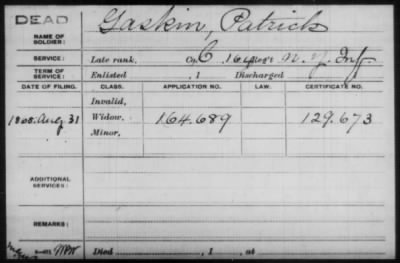 DEAD
NAME OF SOLDIER: Gaskin, Patrick
SERVICE: Late rank, Co. C, 164 Reg't N.Y. Inf
TERM OF SERVICE: Enlisted , 1 Discharged
DATE OF FILING. CLASS. APPLICATION NO. LAW. CERTIFICATE NO.
Invalid,
1868. Aug 31 Widow, 164.689 129.673
Minor,
ADDITIONAL SERVICES:
REMARKS:
Died , 1 , at